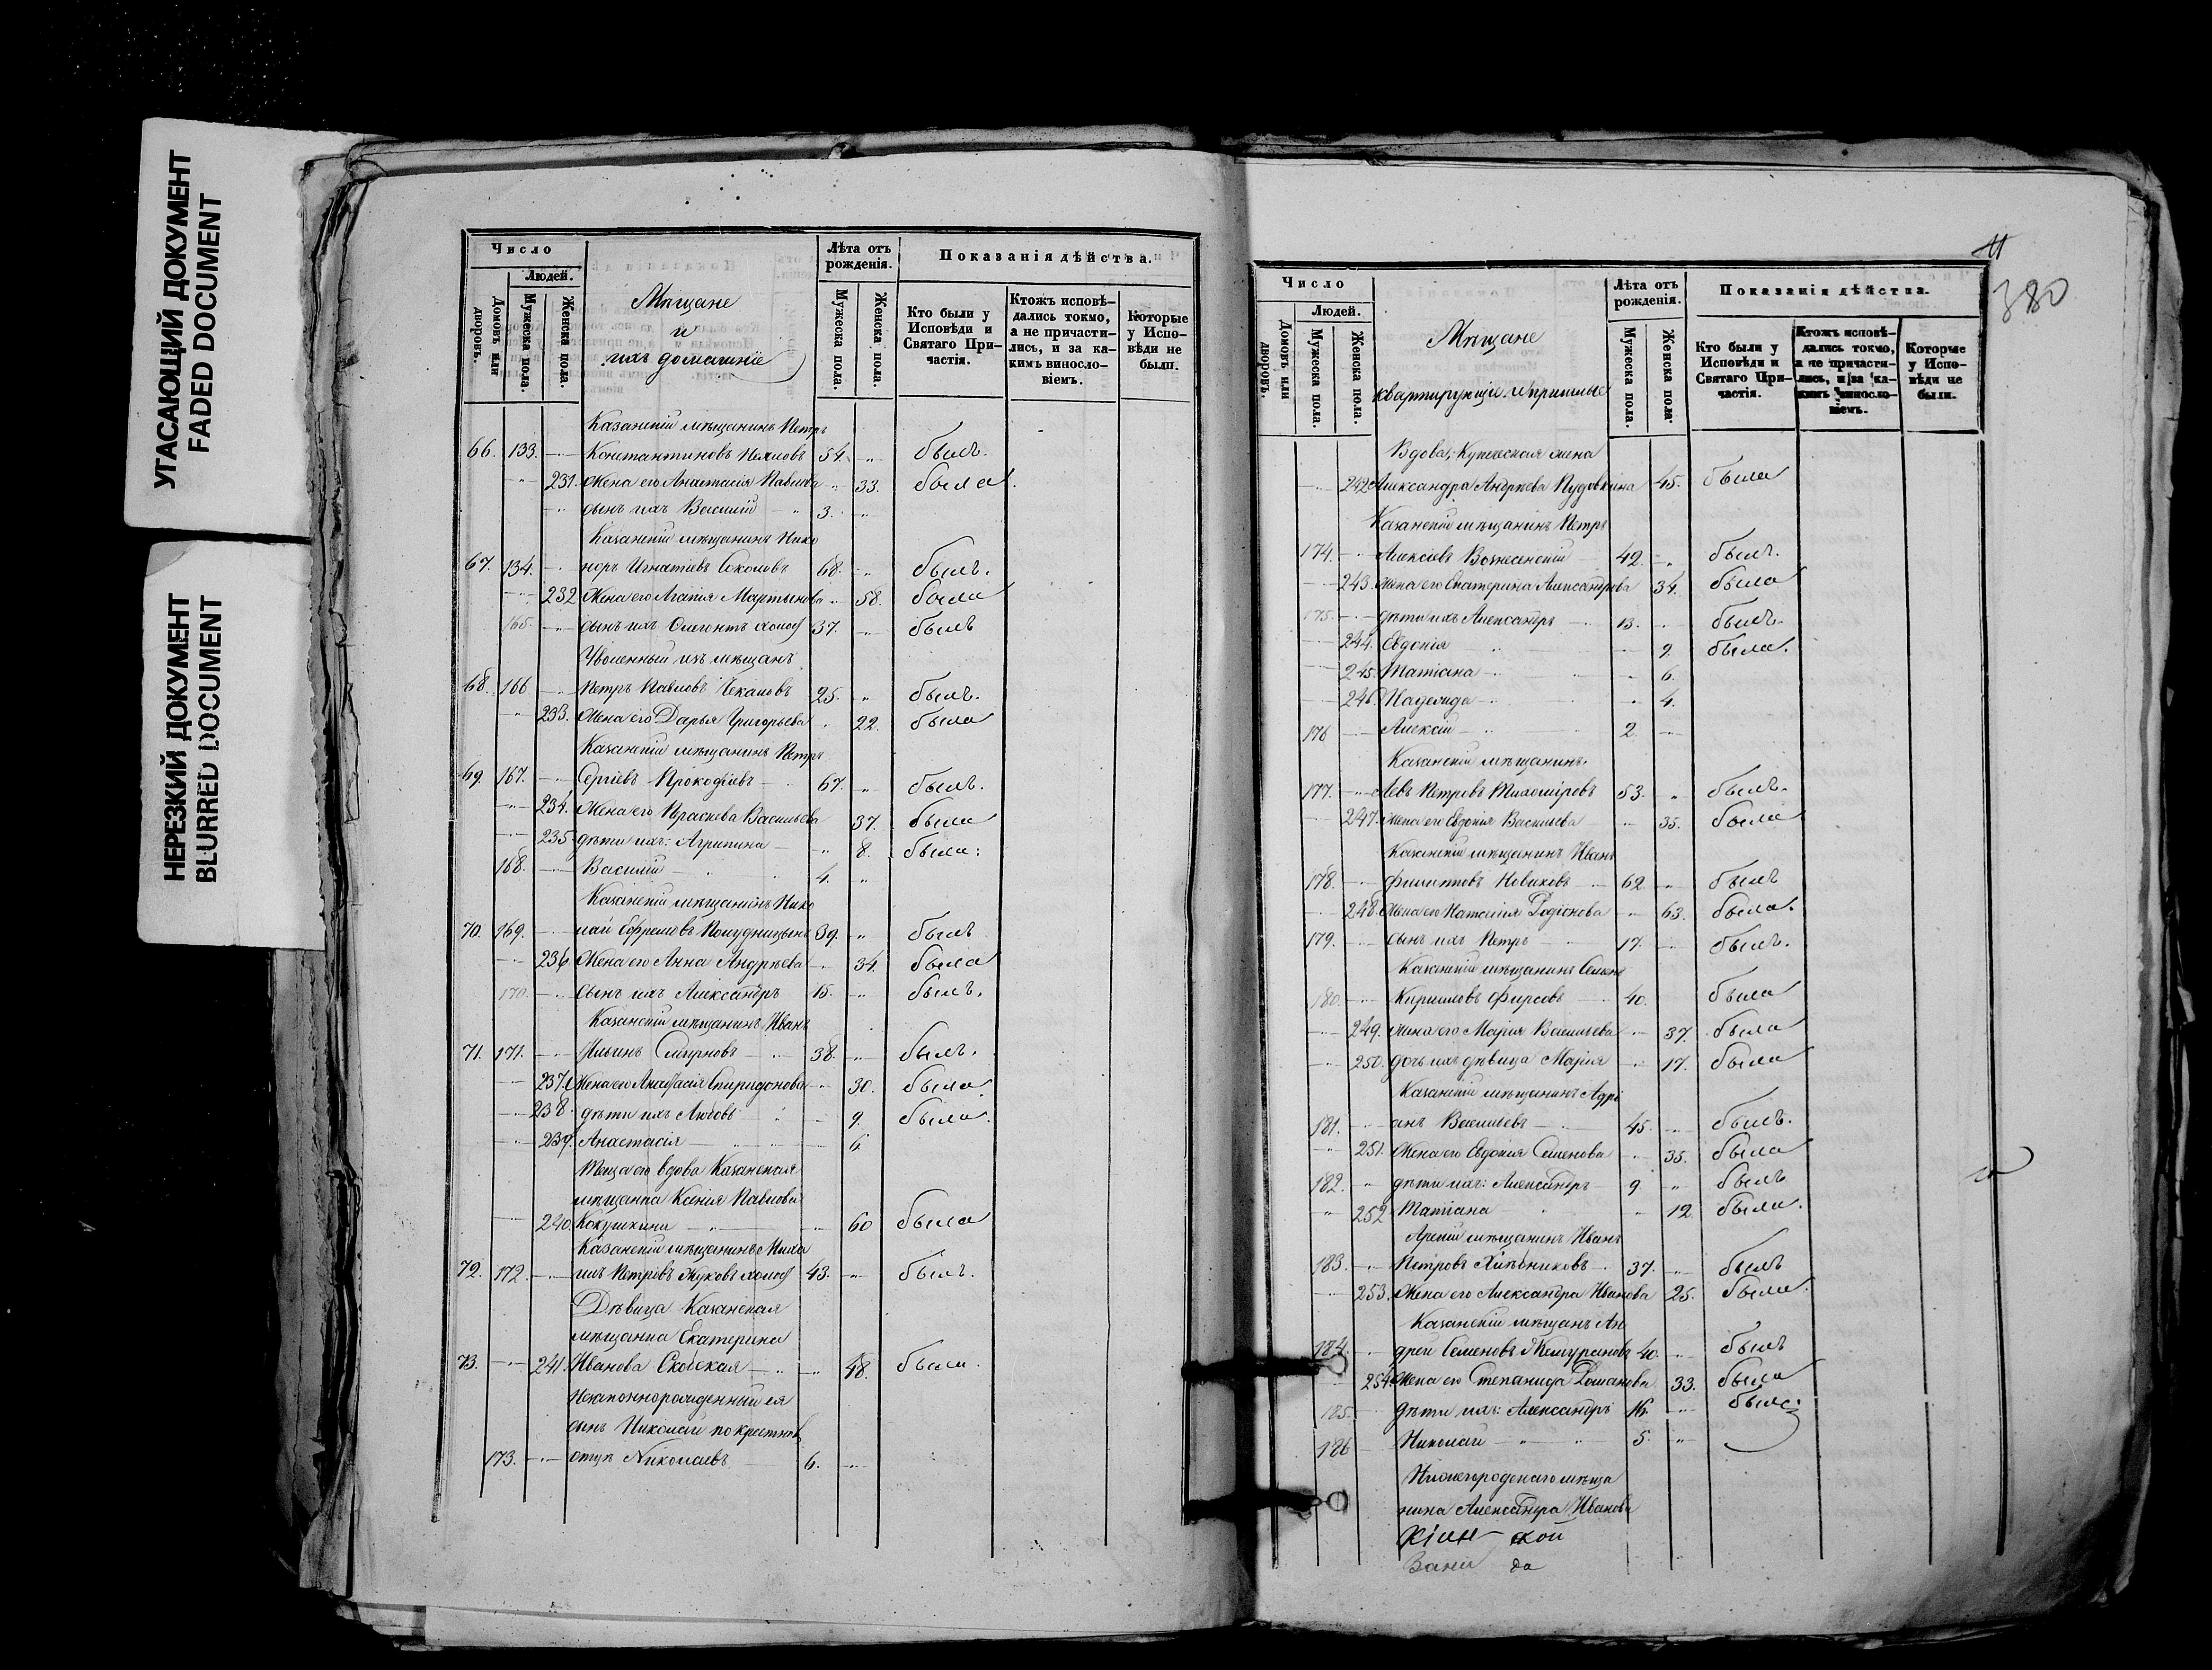 УГАСАЮЩИЙ ДОКУМЕНТ
FADED DOCUMENT
НЕРЕЗКИЙ ДОКУМЕНТ
BLURRED DOCUMENT
Число
Людей.
Домовъ или дворовъ.
Мужеска пола.
Женска пола.
Мѣщане
и
ихъ домашніе
Лѣта отъ рожденія.
Мужеска пола.
Женска пола.
Показанія дѣйства.
Кто были у Исповѣди и Святаго Причастія.
Ктожъ исповѣдались токмо, а не причастились, и за какимъ винословіемъ.
Которые у Исповѣди не были.
Казанскій мѣщанинъ Петръ
66. 133. Константиновъ 54. былъ.
231. Жена его Анастасія Павлова 33. была.
сынъ ихъ Василій 3.
Казанскій мѣщанинъ Ника
67. 134. норъ Игнатіевъ Соколовъ 68. былъ.
232 Жена его Агапія Мартынова 58. была
165. сынъ ихъ холос 37. былъ
Уволенный изъ мѣщанъ
68. 166 Петръ Павловъ Чекановъ 25. былъ.
233. Жена его Дарья Григорьева 22. была
Казанскій мѣщанинъ Петръ
69. 167. Сергіевъ Прокофіевъ 67. былъ.
234. Жена его Праскева Васильева 37. была
235 дѣти ихъ: Агрипина 8. была.
168. Василій 4.
Казанскій мѣщанинъ Нико
70. 169. лай Ефремовъ Полудницынъ 39. былъ
236 Жена его Анна Андрѣева 34. была
170. Сынъ ихъ Александръ 15. былъ.
Казанскій мѣщанинъ Иванъ
71. 171. Ильинъ Смирновъ 38. былъ.
237. Жена его Анастасія Спиридонова 30. была
238. дѣти ихъ Любовь 9. была.
239. Анастасія 6.
Теща его вдова Казанская
мѣщанка Ксенія Павлова
240. Кокушкина 60 была
Казанскій мѣщанинъ Миха
72. 172. илъ Петровъ Жуковъ холос 43. былъ.
Дѣвица Казанская
мѣщанка Екатерина
73. 241. Иванова Скобская 48. была.
Незаконнорожденный ея
сынъ Николай по крестном
173. отцѣ Николаевъ 6.
41
380
Число
Людей.
Домовъ или дворовъ.
Мужеска пола.
Женска пола.
Мѣщане
квартирующіе и пришлые
Лѣта отъ рожденія.
Мужеска пола.
Женска пола.
Показанія дѣйства.
Кто были у Исповѣди и Святаго Причастія.
Ктожъ исповѣдались токмо, а не причастились, и за какимъ винословіемъ.
Которые у Исповѣди не были.
Вдова, Купеческая жена
242. Александра Андрѣева Пудовкина 45. была
Казанскій мѣщанинъ Петръ
174. Алексіевъ Вознесенскій 42. былъ.
243. Жена его Екатерина Александрова 34. была
175. дѣти ихъ Александръ 13. былъ.
244. Евдокія 9. была.
245. Татіана 6.
246. Надежда 4.
176 Алексій 2.
Казанскій мѣщанинъ
177. Левъ Петровъ Тихоміровъ 53. былъ.
247. Жена его Евдокія Васильева 35. была
Казанскій мѣщанинъ Иванъ
178. Филипповъ Новиковъ 62. былъ
248. Жена его Наталія Родіонова 63. была.
179. сынъ ихъ Петръ 17. былъ.
Казанскій мѣщанинъ Семенъ
180. Кириловъ Фирсовъ 40. была
249. Жена его Марія Васильева 37. была
250. дочь ихъ дѣвица Марія 17. была
Казанскій мѣщанинъ Адрі
181. анъ Васильевъ 45. былъ.
251. Жена его Евдокія Семенова 35. была
182. дѣти ихъ: Александръ 9. былъ
252 Татіана 12. была.
Арскій мѣщанинъ Иванъ
183. Петровъ Хлѣбниковъ 37. былъ
253. Жена его Александра Иванова 25. была.
Казанскій мѣщанъ Ан
184. дрей Семеновъ 40. былъ
254. Жена его Степанида 33. была
185. дѣти ихъ: Александръ 16. былъ
186 Николай 5.
Нижегородскаго мѣща
нина Александра Иванова